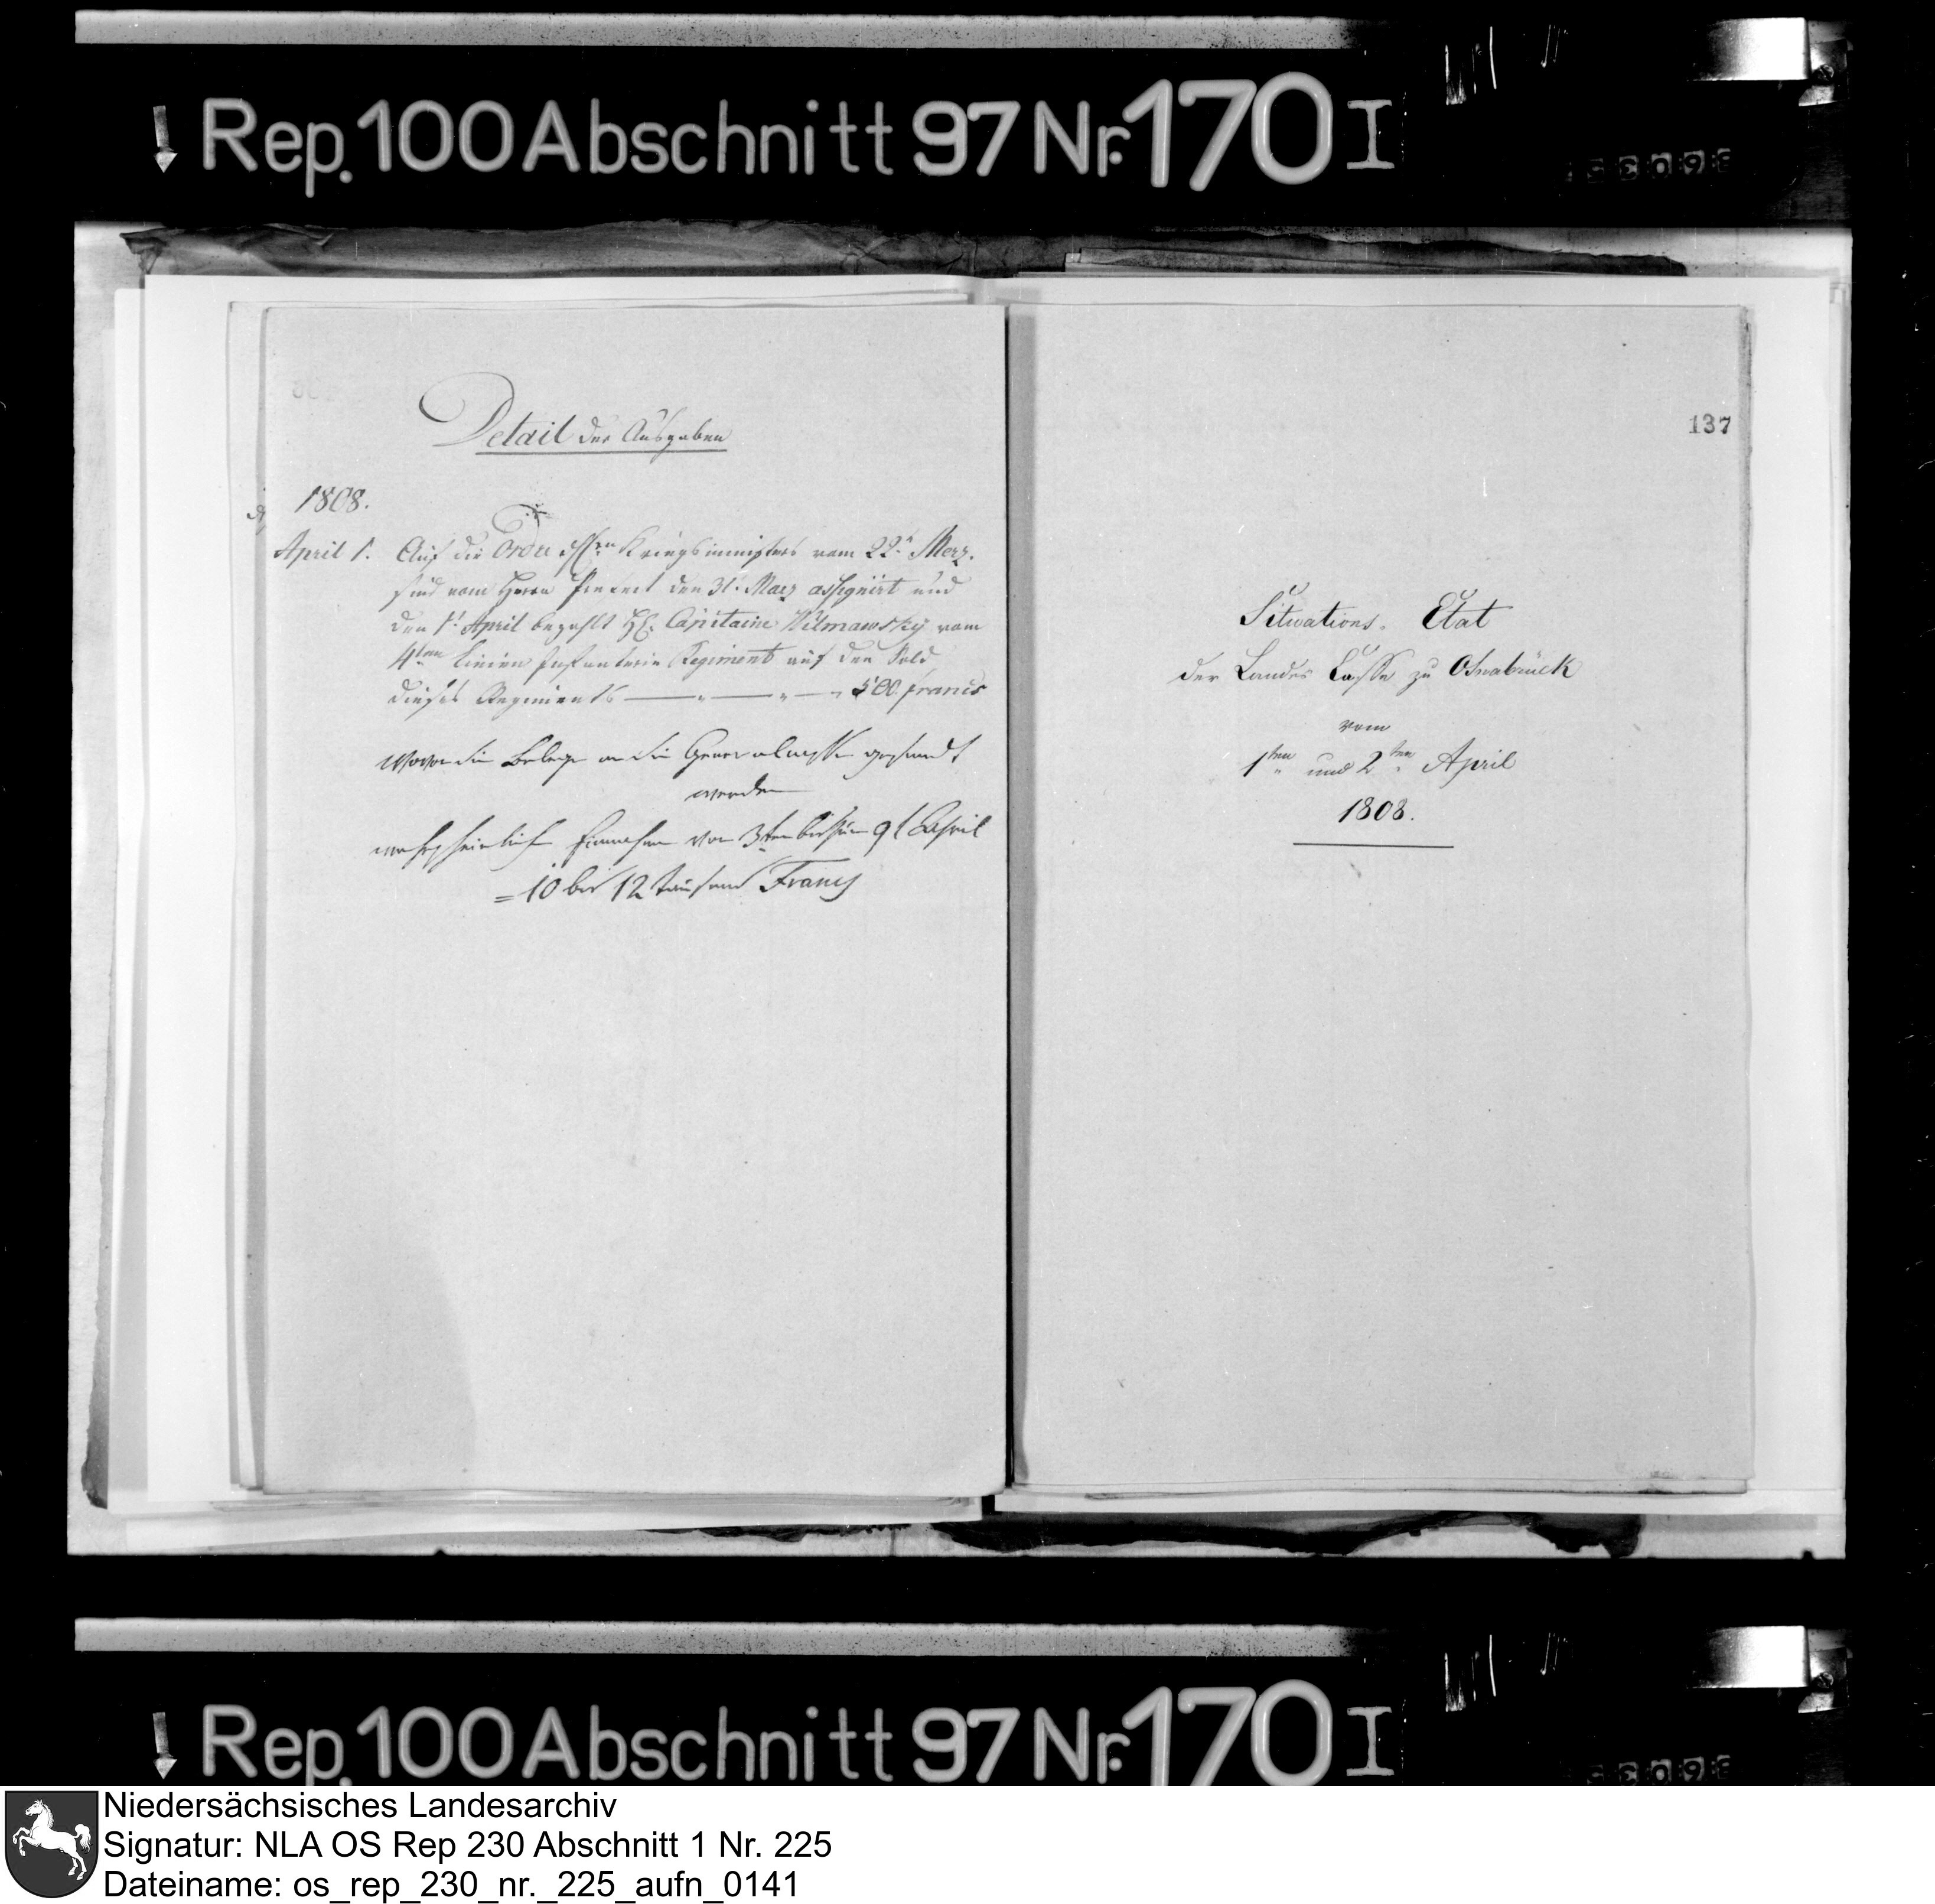 Rep. 100 Abschnitt 97 Nr. 170 I
Detail der Ausgaben
1808.
April 1. Auf die Order Kriegsministers vom 22.n Merz.
sind vom Herrn den 31.t Maerz assignirt und
den 1.t April bezahlt H. Capitaine Wilmawsky vom
4ten Linien Infanterie Regiment auf den Sold
dieses Regiments — " — " — 500. francs
wovon die Belege an die Generalcasse gesandt
werden
wahrscheinliche Einnahme von 3ten bis zum 9t April
= 10 bis 12 tausend Francs
137
Situations. Etat
der Landes Casse zu Osnabrück
vom
1ten und 2ten April
1808.
Rep. 100 Abschnitt 97 Nr. 170 I
Niedersächsisches Landesarchiv
Signatur: NLA OS Rep 230 Abschnitt 1 Nr. 225
Dateiname: os_rep_230_nr._225_aufn_0141